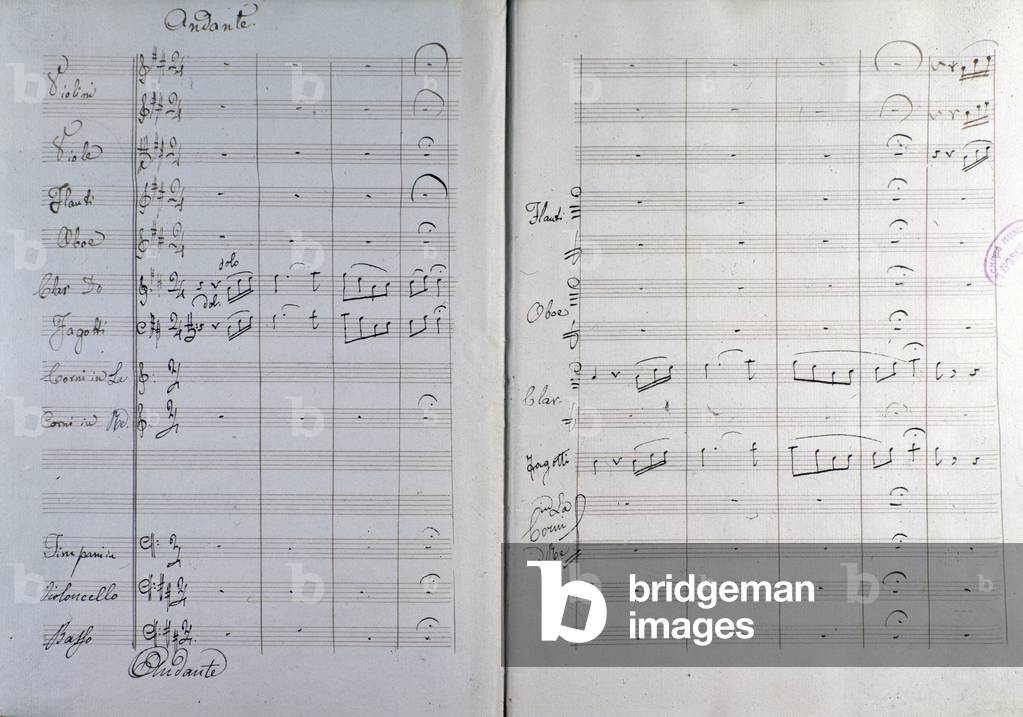 Andante
Violini
Viole
Flauti
Oboe
solo
Clar Do
dol.
Fagotti
Corni in La
Corni in Re.
Timpani in
Violoncello
Basso
Andante
Flauti
Oboe
Clar.
Fagotti
in La
Corni
in Re
bridgeman
images